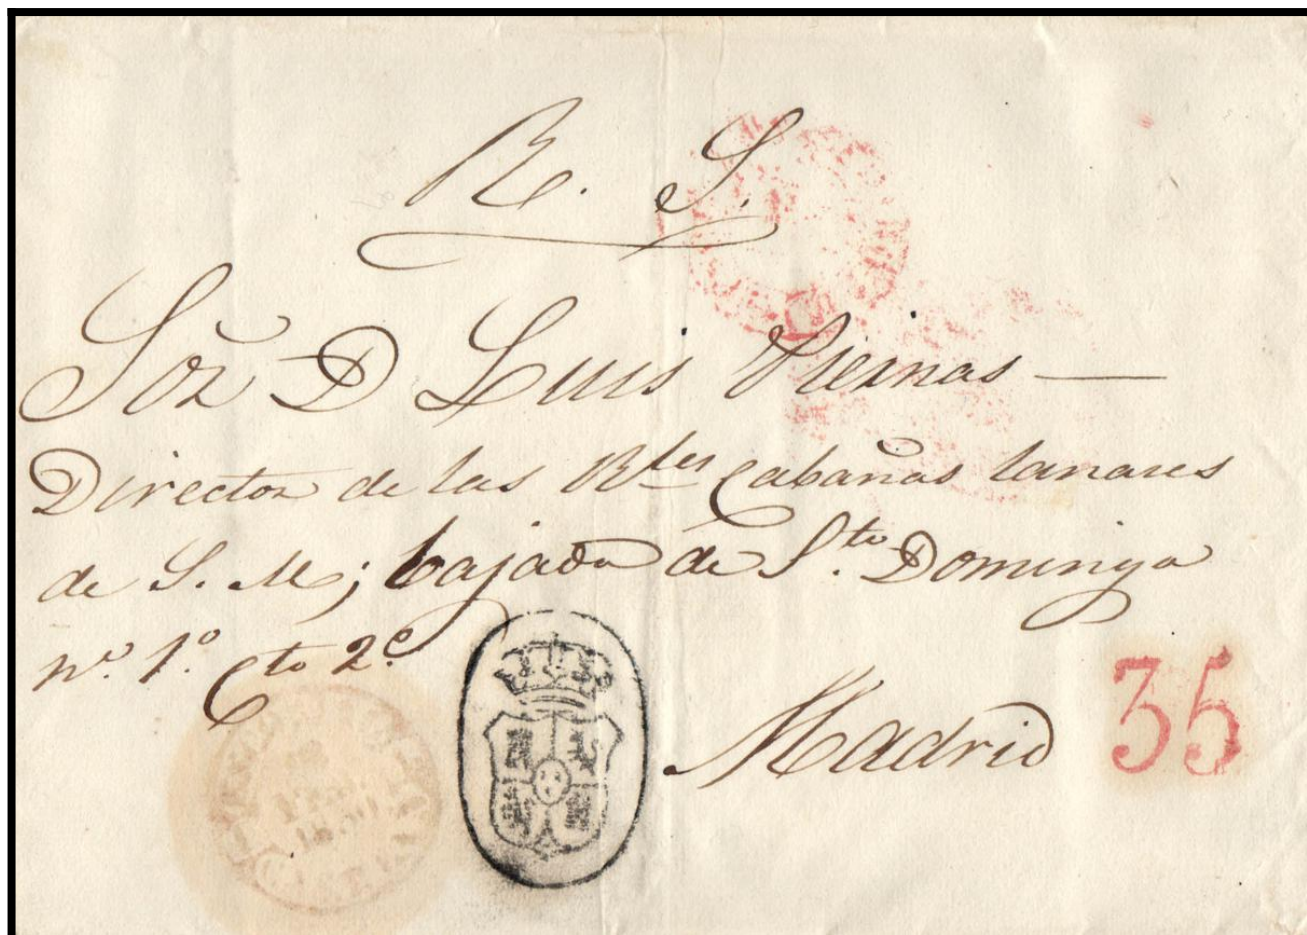 R. S.
Sor D Luis Piernas
Director de las Rles Cabañas lanares
de S. M; bajada de Sto Domingo
nº 1º. Cto 2º
Madrid
35